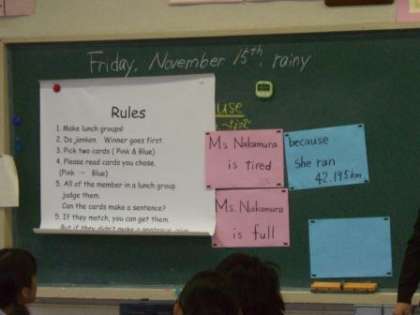 Friday, November 15th, rainy
Rules
1. Make lunch groups!
2. Do janken. Winner goes first.
3. Pick two cards ( Pink & Blue)
4. Please read cards you chose.
(Pink → Blue)
5. All of the member in a lunch group
judge them.
Can the cards make a sentence?
5. If they match, you can get them.
But if they didn't make a sentence,
use
Ms. Nakamura
is tired
because
she ran
42.195km
Ms. Nakamura
is full